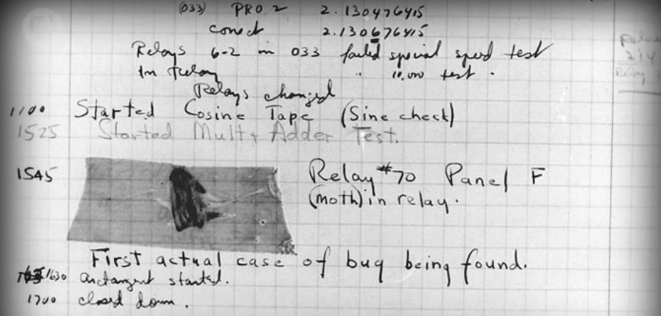 (033) PRO 2 2.130476415
conect 2.130676415
Relays 6-2 in 033 failed special speed test
In Relay " 10,000 test.
Relays changed
1100 Started Cosine Tape (Sine check)
1525 Started Mult + Adder Test.
1545 Relay #70 Panel F
(moth) in relay.
First actual case of bug being found.
1630 arctangent started.
1700 closed down.
Relay